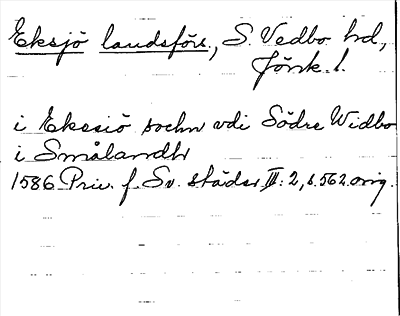 Eksjö landsförs., S. Vedbo hd,
Jönk. l.
i Ekesiö sochn vdi Södre Widbo
i Smålandh
1586 Priv. f. Sv. städer III: 2, s. 562 orig.